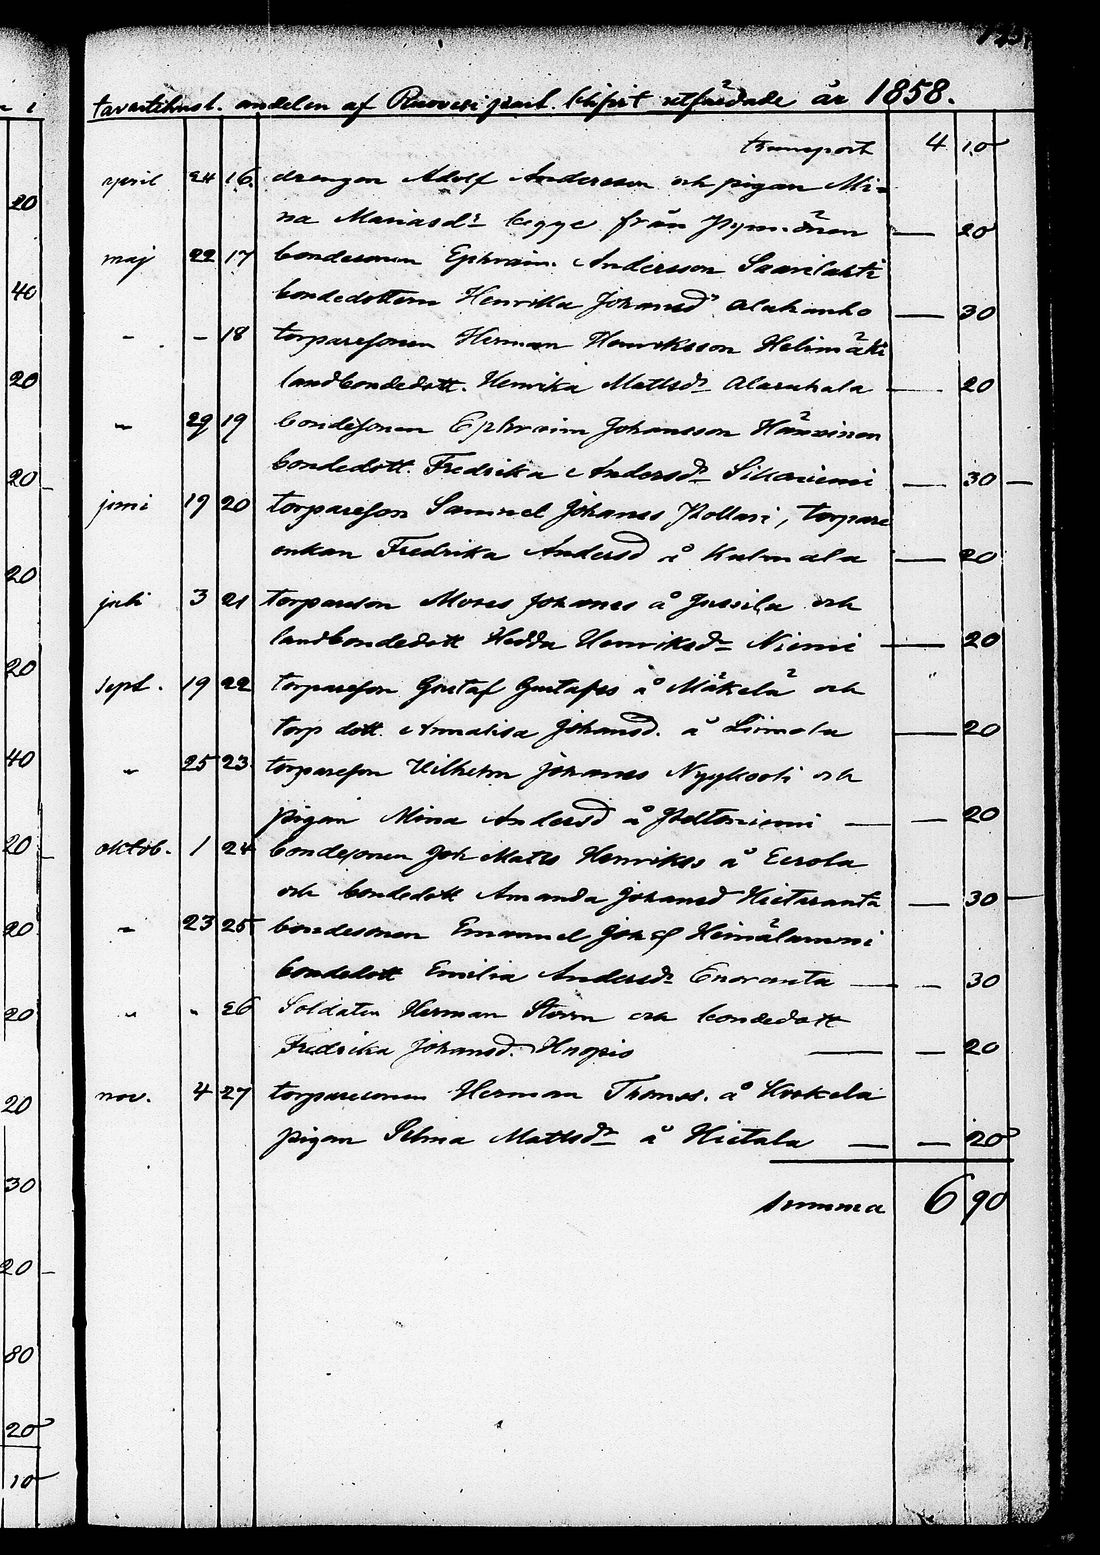 tavastehusl. andelen af Ruovesi past. utfärdade år 1858.
transport 4 10
april 24 16. drengen Adolf Andersson och pigan Mi=
na Mariasdr begge från — 20
maj 22 17 bondesonen Ephraim Andersson Saarilahti
bondedottern Henrika Johansdr Alahanho — 30
" - 18 torparesonen Herman Henriksson Helimäki
landbondedott. Henrika Mattsdr — 20
" 29 19 bondesonen Ephraim Johansson
bondedott. Fredrika Andersdr — 30 —
juni 19 20 torpareson Samuel Johanss Pollari, torpare
enkan Fredrika Andersd å — 20
juli 3 21 torpareson Moses Johanss å Jussila och
landbondedott Hedda Henriksdr Niemi — 20
sept. 19 22 torpareson Gustaf Gustafss å Mäkelä och
torp dott. Annalisa Johansd. å Liimola — 20
" 25 23 torpareson Vilhelm Johanss och
pigan Mina Andersd å Peltoniemi — — 20
oktob. 1 24 bondesonen Joh Matts Henrikss å Eerola
och bondedott Amanda Johansd Hietaranta — 30 —
" 23 25 bondesonen Emanuel Heinälammi
bondedott Emilia Andersdr Enoranta — — 30
" " 26 Soldaten Herman Storm och bondedott
Fredrika Johansd. — — 20
nov. 4 27 torparesonen Herman Thomss. å Koskela
pigan Selma Mattsdr å Hietala — — 20
summa 6 90
20
40
20
20
20
20
40
20
20
20
20
30
20
80
20
10